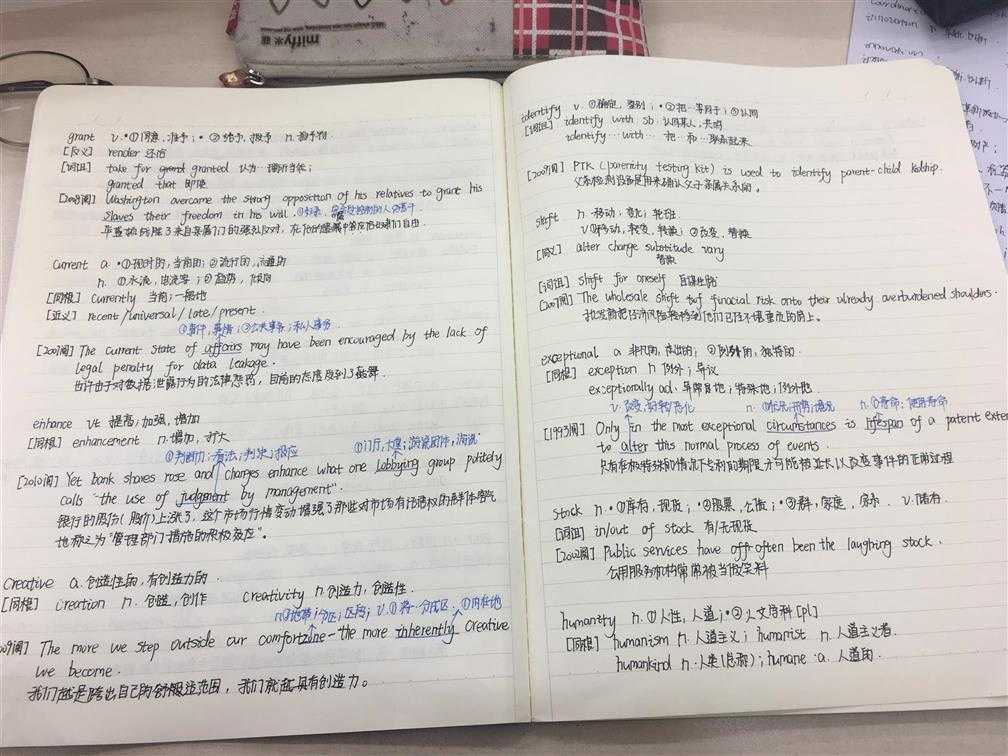 miffy米菲
grant v. ·①同意,准予; ·②给予,授予 n.
[反义] render 还给
[词组] take for granted 认为…理所当然;
granted that 即使
[2008阅] Washington overcame the strong opposition of his relatives to grant his
slaves their freedom in his will.
华盛顿战胜了来自亲属们的强烈反对,在他的遗嘱中答应给奴隶们自由.
current a. ·①现时的,当前的;②流行的,流通的
n. ①水流,电流等;②趋势,倾向
[同根] currently 当前;一般地
[近义] recent/universal/late/present.
①事件,事情;②公共事务;私人事务.
[2007阅] The current state of affairs may have been encouraged by the lack of
legal penalty for data leakage.
也许由于对数据泄露行为的法律惩罚,目前的态度受到了鼓舞.
enhance vt. 提高,加强,增加
[同根] enhancement n.增加,扩大
①判断力;看法;判决;报应 ①门厅,大厅;游说团体,游说
[2010阅] Yet bank shares rose and changes enhance what one lobbying group politely
calls "the use of judgment by management".
银行的股份(股价)上涨了,这个市场行情变动增强了那些对市场有话语权的群体客气
地称之为“管理部门措施的积极反应”。
creative a.创造性的,有创造力的.
[同根] creation n. 创造,创作 creativity n.创造力,创造性.
n.①地带;分区;区段;v.①将…分成区. ①内在地
09阅] The more we step outside our comfortzone-the more inherently creative
we become.
我们越是跨出自己的舒服适范围,我们就越具有创造力。
identify v. ①确定,鉴别; ·②把…等同于;③认同
[词组] identify with sb. 认同某人,共鸣
identify…with… 把…和…联系起来
[2009阅] PTK (parenity testing kit) is used to identify parent-child kidship.
父亲检测设备是用来确认父子亲属关系的。
shift n.移动,变化;轮班
v.①移动,转变,转换;②改变,替换
[同义] alter change substitude vary
替换
[词组] shift for oneself 自谋生路
[2007阅] The wholesale shift of finacial risk onto their already overburdened shoulders.
批发商把经济风险转移到他们已经不堪重负的肩上。
exceptional a.非凡的,杰出的;②例外的,独特的.
[同根] exception n.例外;异议
exceptionally ad.异常地;特殊地;例外地.
v.改变,转变,恶化 n.①状况,形势,情况 n.①寿命;使用寿命
[1993阅] Only in the most exceptional circumstances is lifespan of a patent exten
to alter this normal process of events.
只有在极特殊的情况下专利的期限才可能被延长以改变事件的正常过程
stock n. ·①库存,现货; ·②股票,公债; ·③群,家庭, v.储存.
[词组] in/out of stock 有/无现货
[2002阅] Public services have often been the laughing stock.
公用服务机构常常被当做笑料
humanity n. ①人性,人道; ·②人文学科[pl]
[同根] humanism n.人道主义; humanist n.人道主义者.
humankind n.人类(总称); humane a.人道的.